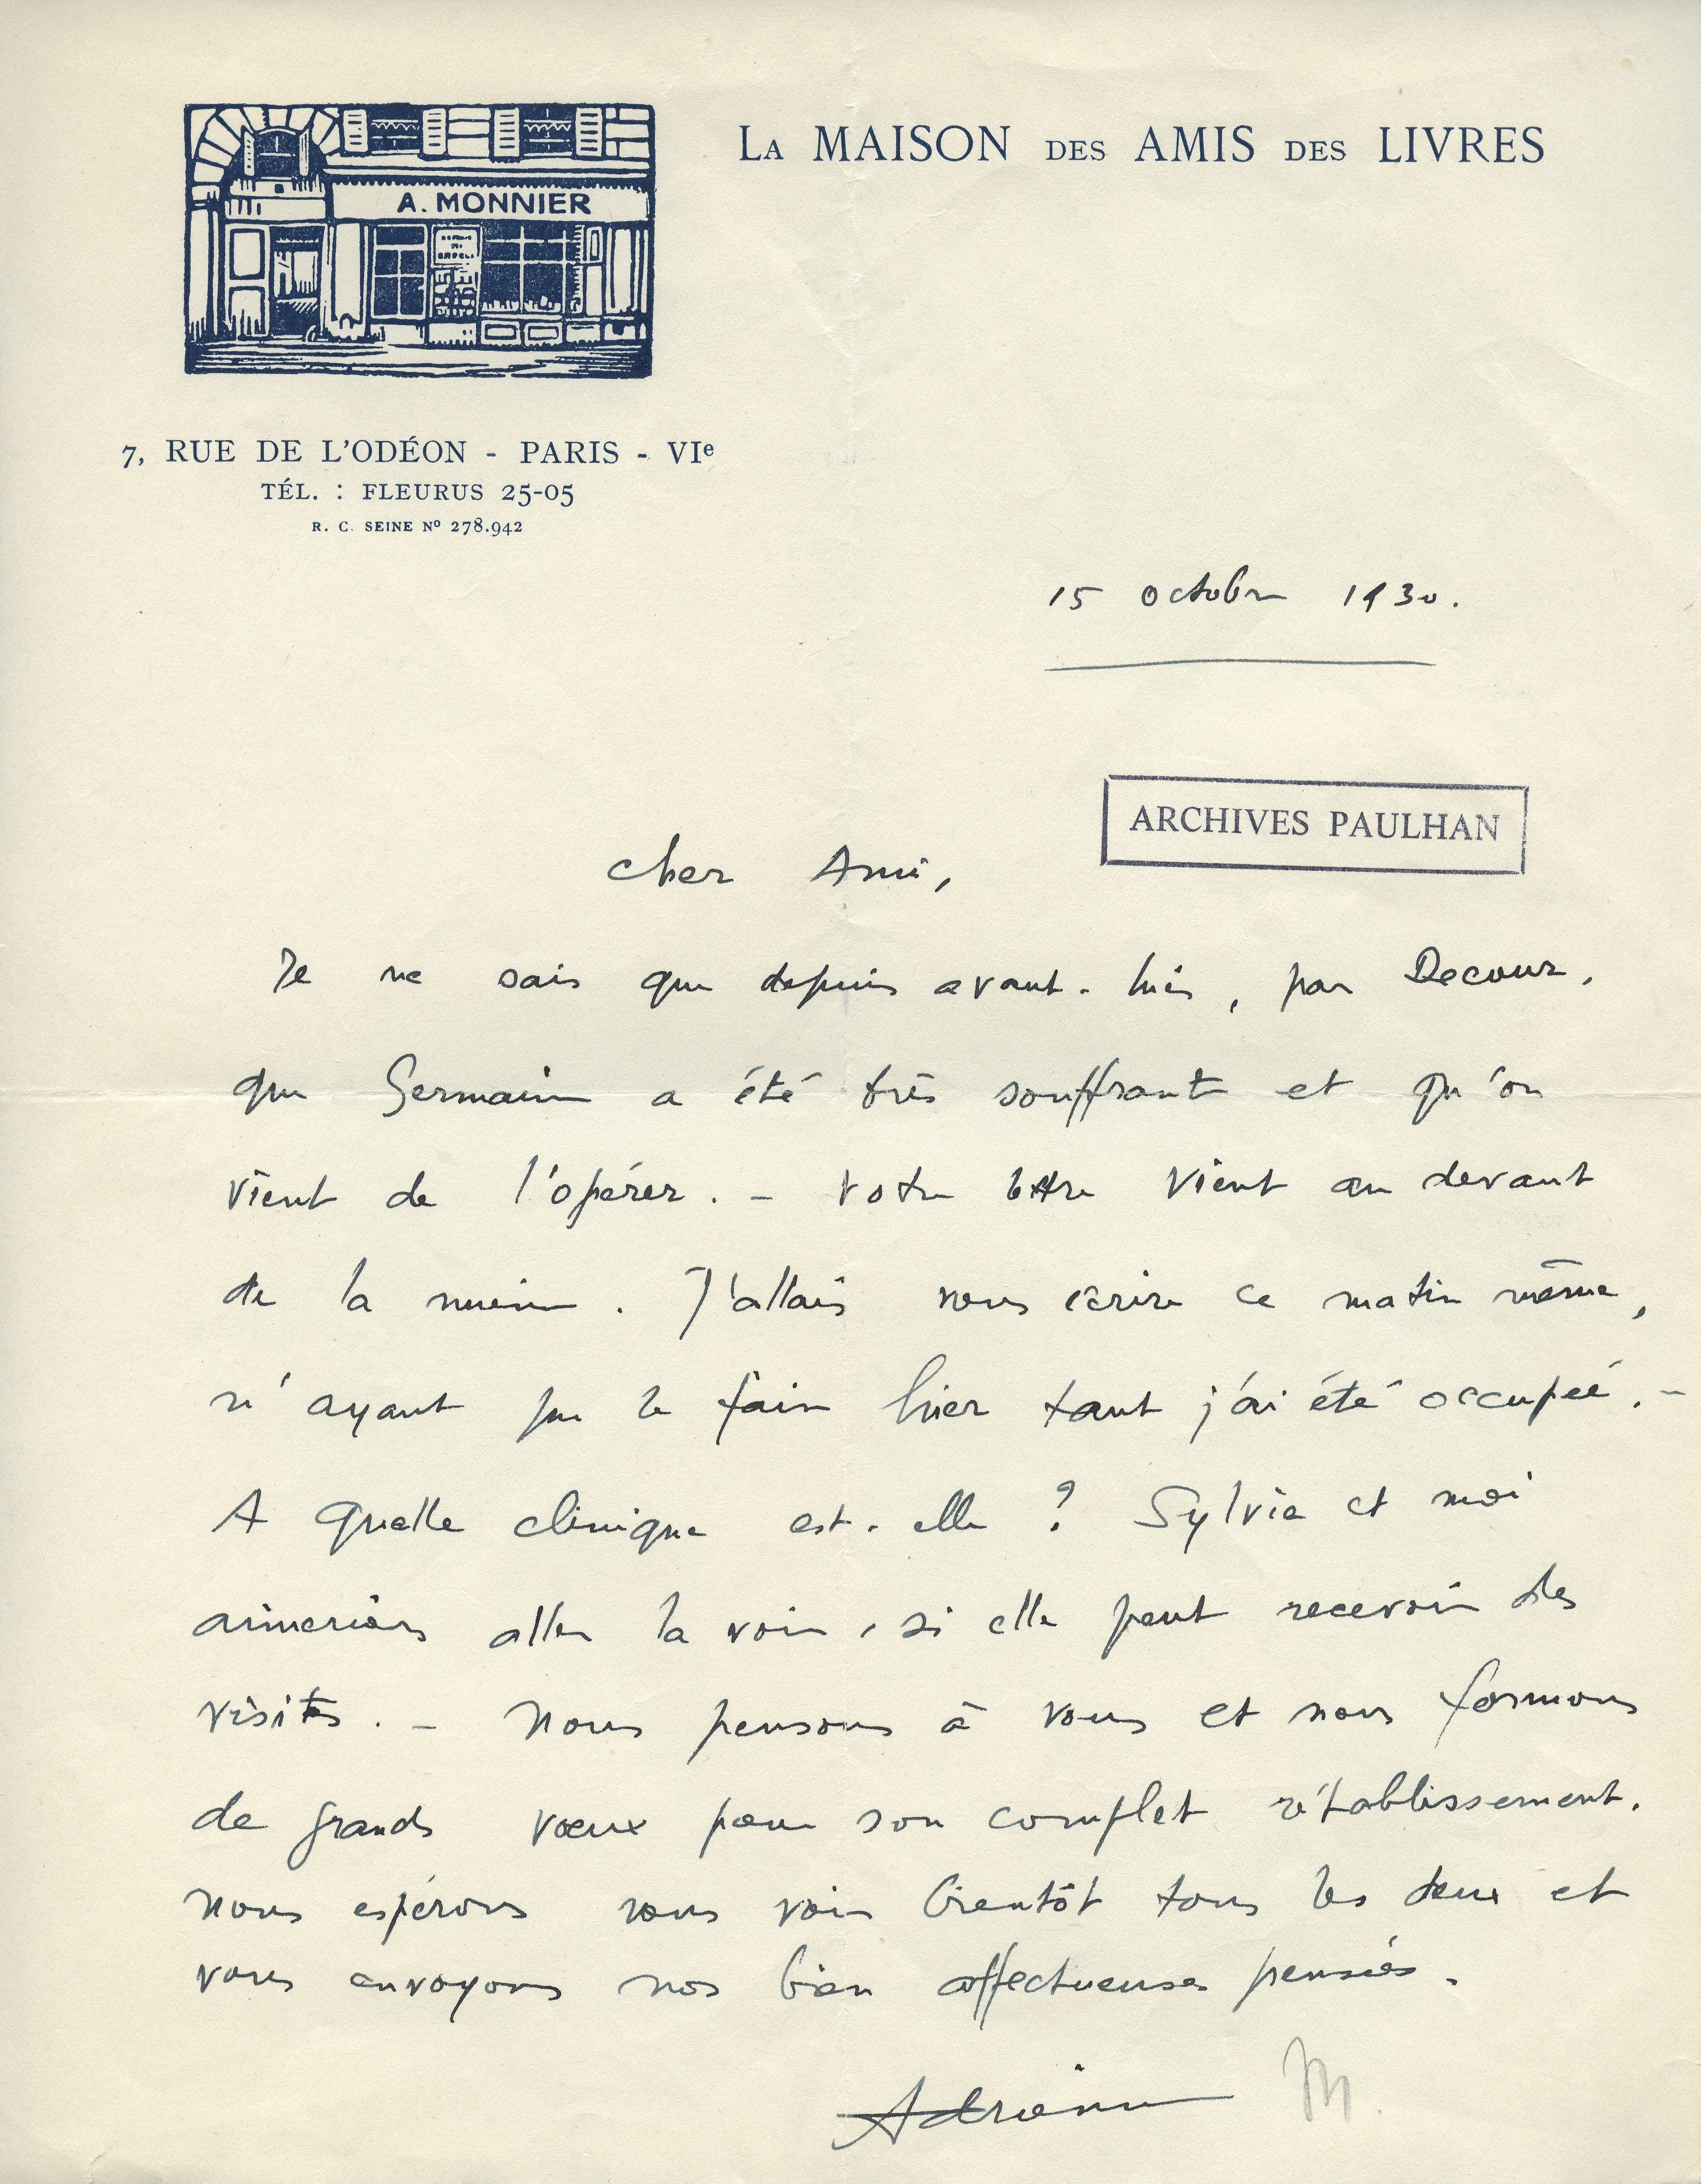 LA MAISON DES AMIS DES LIVRES
A. MONNIER
7, RUE DE L'ODÉON - PARIS - VIe
TÉL. : FLEURUS 25-05
R. C. SEINE No 278.942
15 octobre 1930.
ARCHIVES PAULHAN
Cher Ami,
Je ne sais que depuis avant-hier, par Decour,
que Germaine a été très souffrante et qu'on
vient de l'opérer. – Votre lettre vient au devant
de la mienne. J'allais vous écrire ce matin même,
n'ayant pu le faire hier tant j'ai été occupée. –
A quelle clinique est-elle ? Sylvia et moi
aimerions aller la voir, si elle peut recevoir des
visites. – Nous pensons à vous et nous formons
de grands vœux pour son complet rétablissement.
Nous espérons vous voir bientôt tous les deux et
vous envoyons nos bien affectueuses pensées.
Adrienne M.